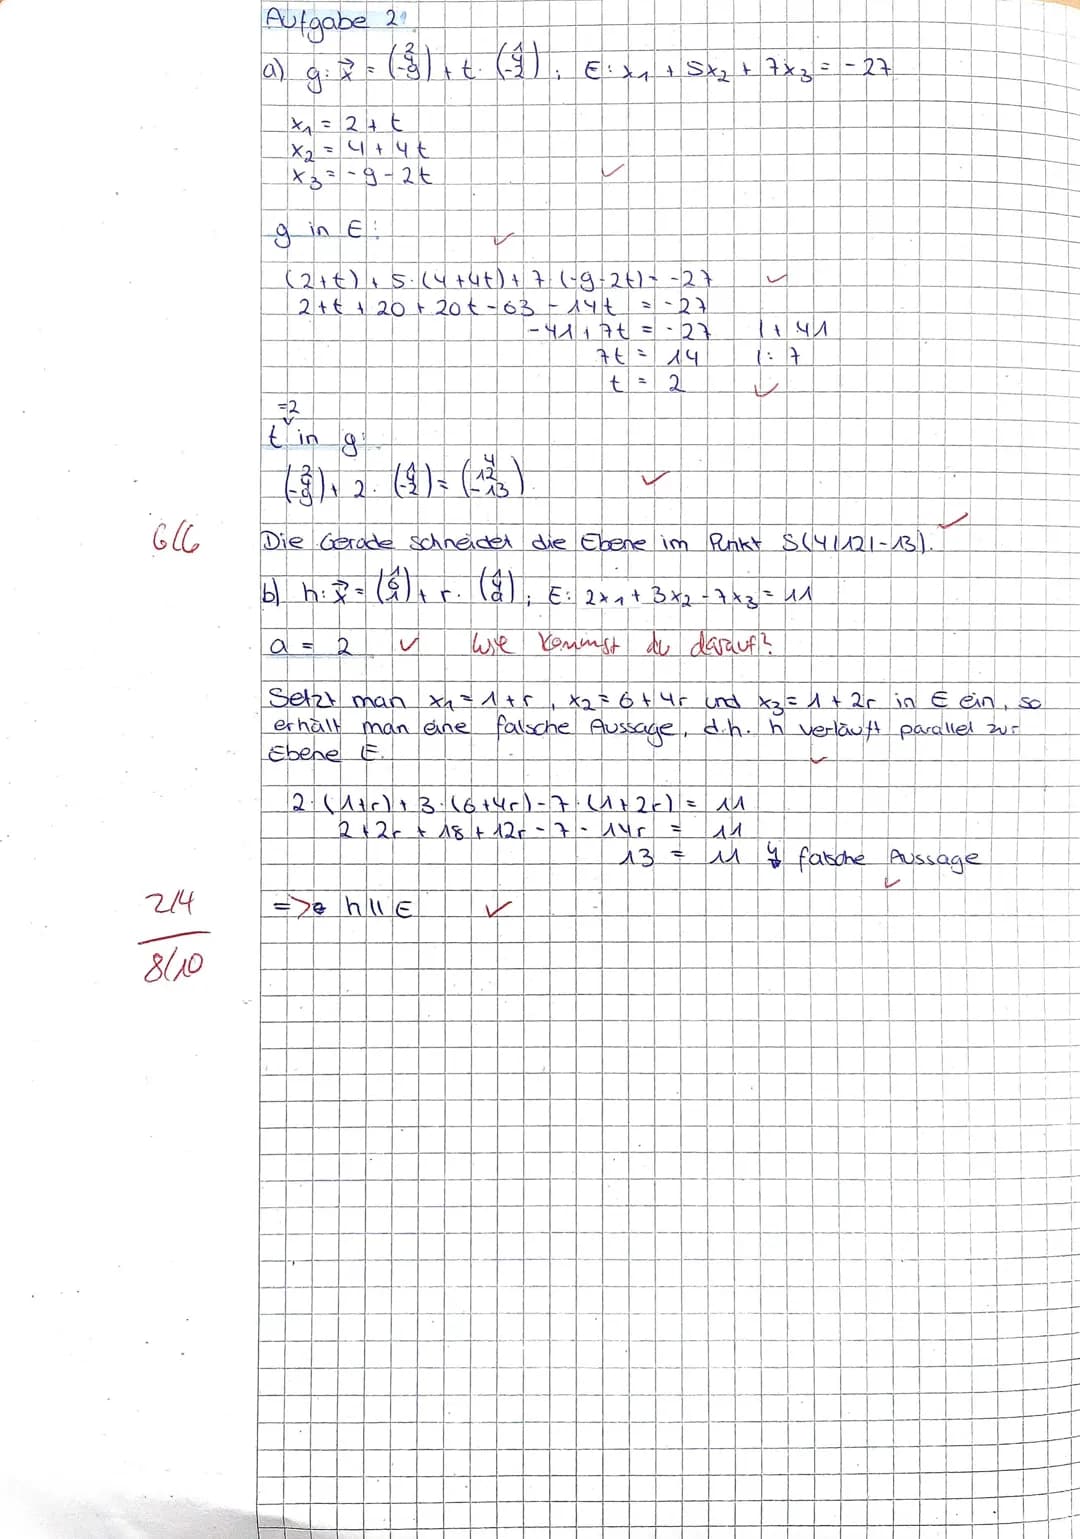 Aufgabe 2
a) g: x⃗ = (2 4 -9) + t · (1 4 -2) ; E: x₁ + 5x₂ + 7x₃ = -27
x₁ = 2 + t
x₂ = 4 + 4t
x₃ = -9 - 2t ✓
g in E: ✓
(2+t) + 5·(4+4t) + 7·(-9-2t) = -27 ✓
2+t + 20 + 20t - 63 - 14t = -27
-41 + 7t = -27 | + 41
7t = 14 | : 7
t = 2 ✓
=2
t in g:
(2 4 -9) + 2 · (1 4 -2) = (4 12 -13) ✓
6/6 Die Gerade schneidet die Ebene im Punkt S(4|12|-13). ✓
b) h: x⃗ = (1 6 1) + r · (1 4 a) ; E: 2x₁ + 3x₂ - 7x₃ = 11
a = 2 ✓ Wie kommst du darauf?
Setzt man x₁ = 1+r, x₂ = 6+4r und x₃ = 1+2r in E ein, so
erhält man eine falsche Aussage, d.h. h verläuft parallel zur
Ebene E. ✓
2·(1+r) + 3·(6+4r) - 7·(1+2r) = 11
2+2r + 18 + 12r - 7 - 14r = 11
13 = 11 ↯ falsche Aussage ✓
2/4 => h || E ✓
8/10